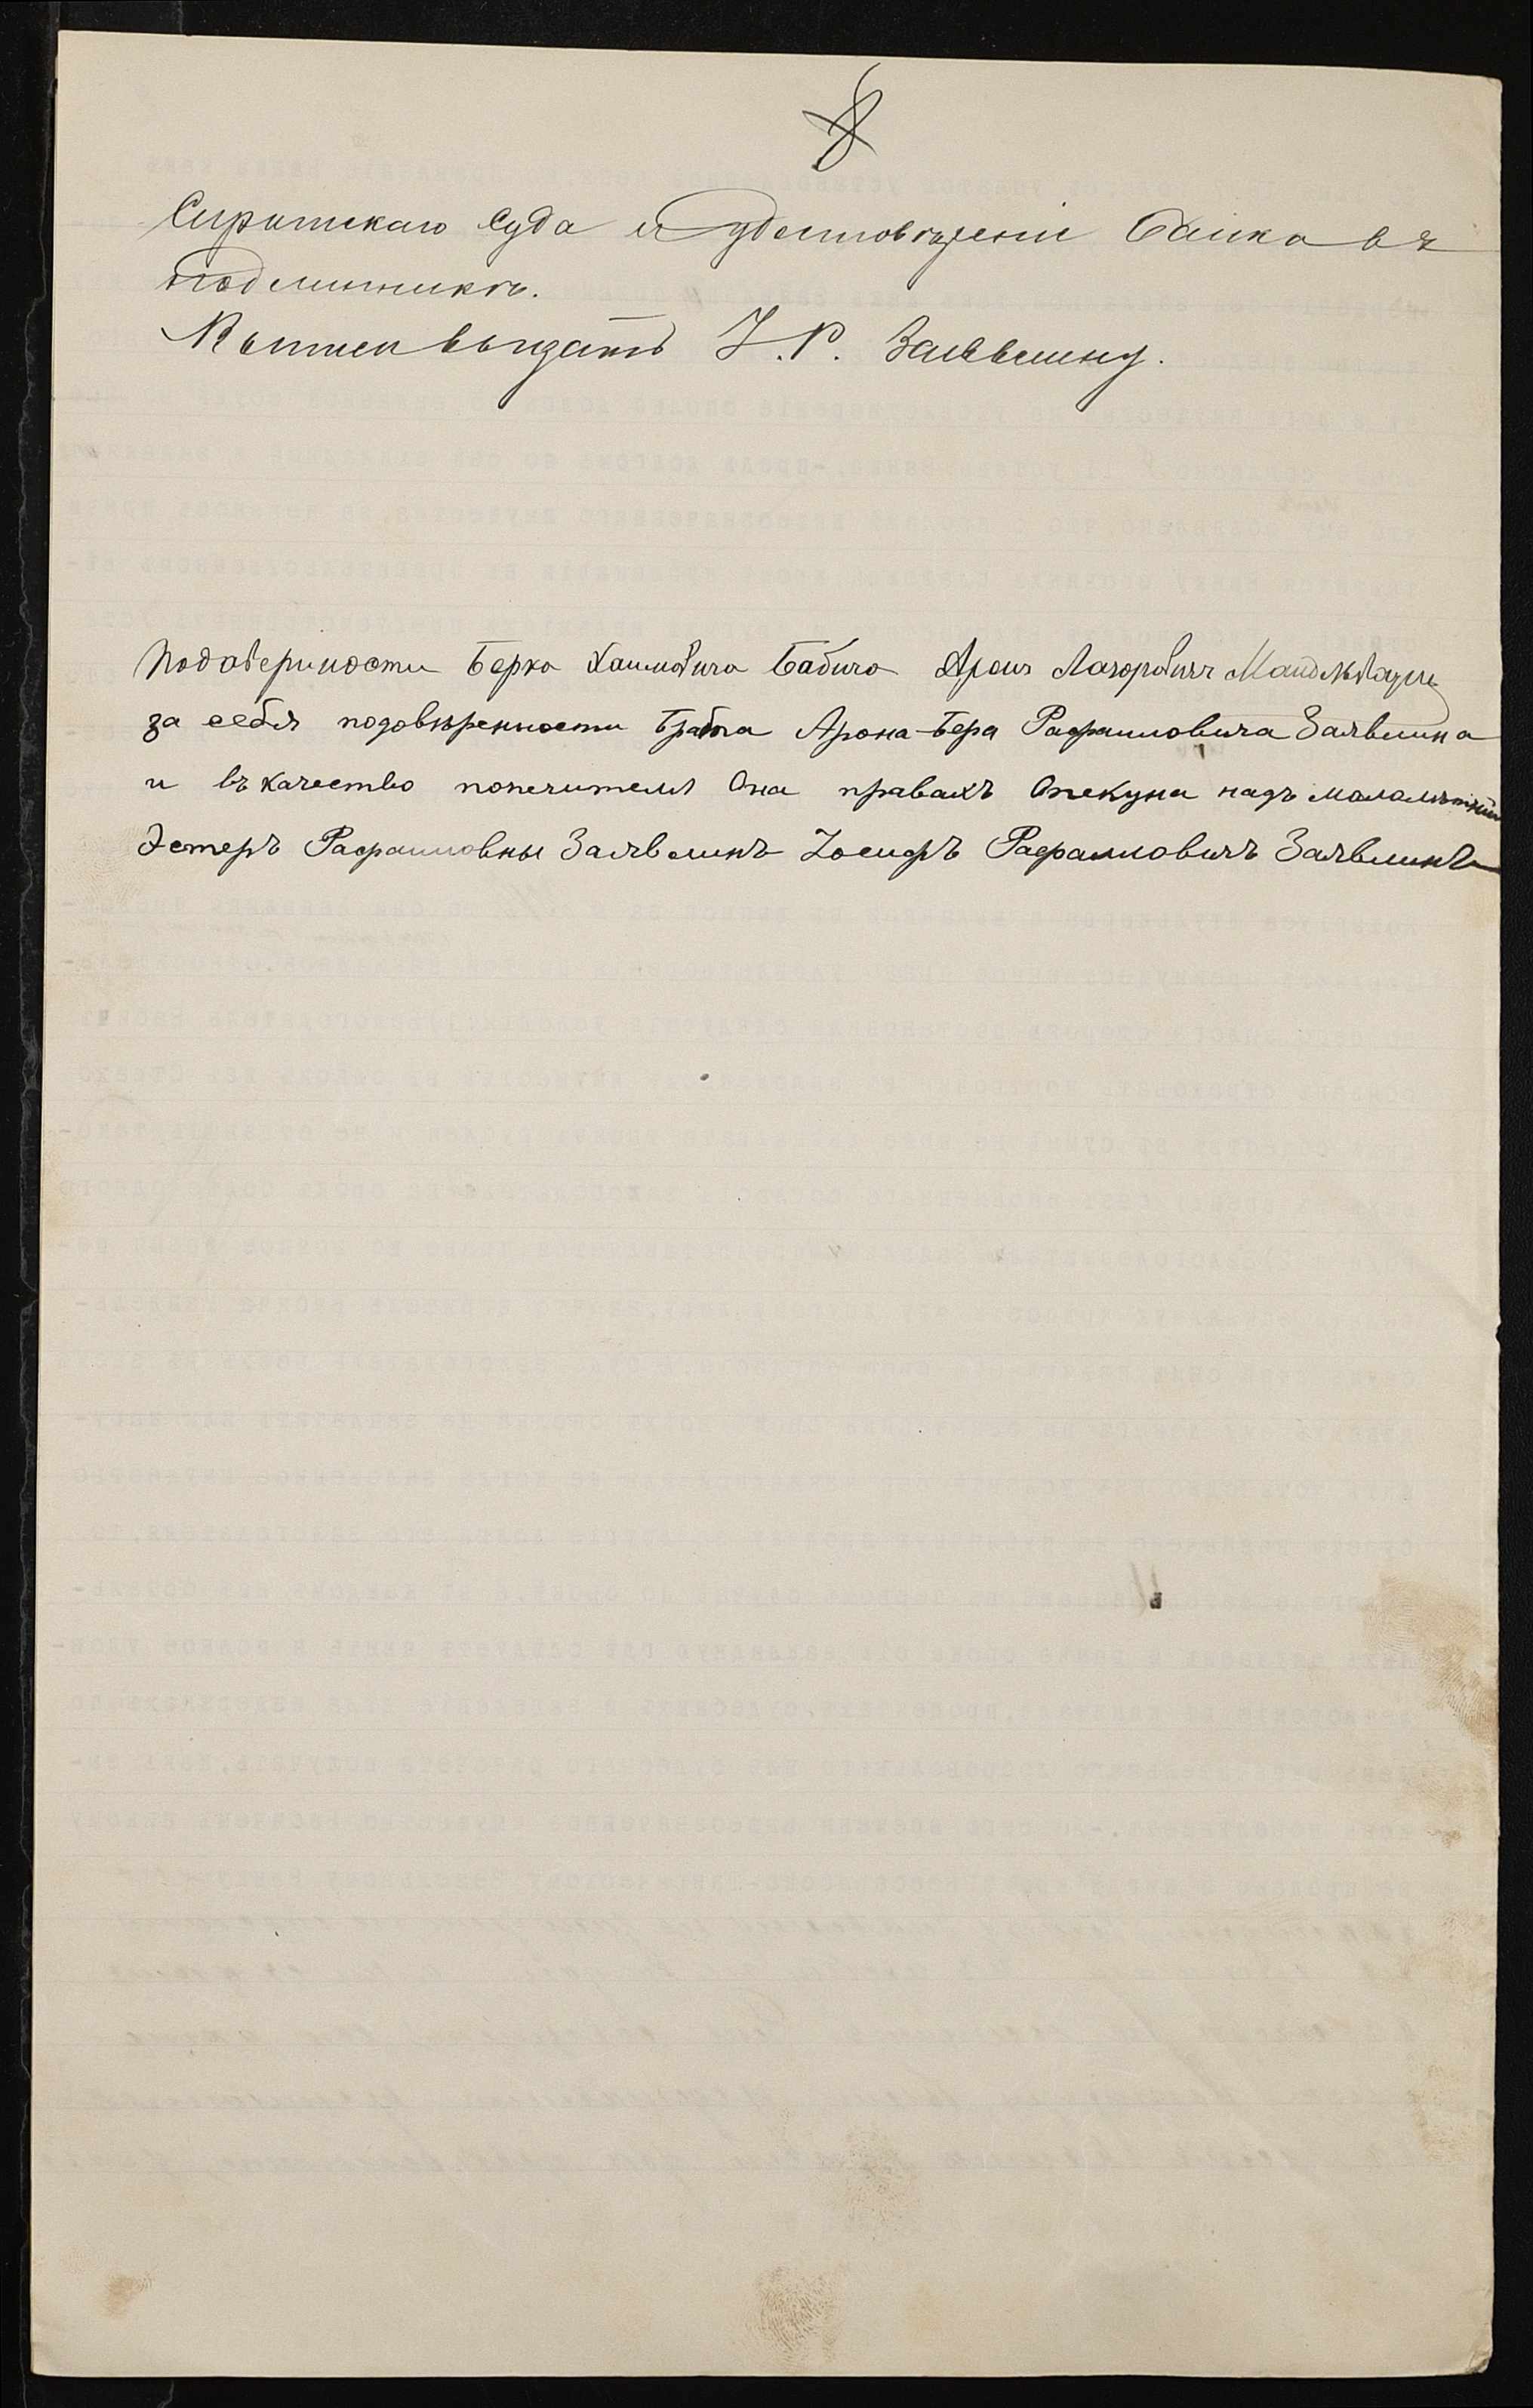 Сиротскаго Суда и удостовѣреніе Банка въ
подлинникѣ.
выдать І. Р. Заявлину.
Подовериности Берка Хаимовича Бабича Арон Лазоровичъ
за себя подовѣренности Брата Арона-Бера Рафаиловича Заявлина
и въ качество попечителя Она правахъ Опекуна надъ малолѣтней
Эстеръ Рафаиловны Заявлинъ Іосифъ Рафаиловичъ Заявлинъ